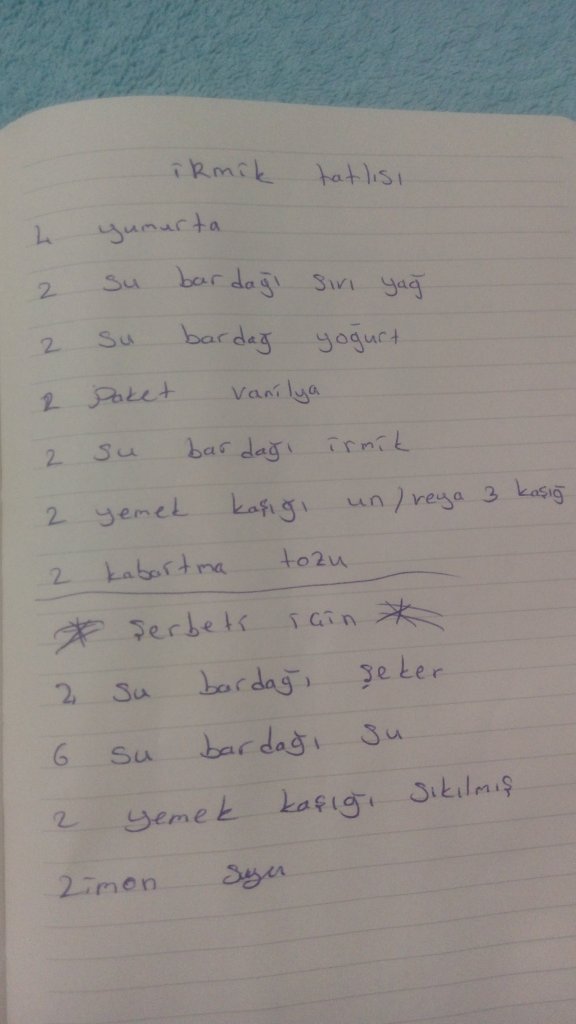 irmik tatlısı
4 yumurta
2 su bardağı sıvı yağ
2 su bardağ yoğurt
2 paket vanilya
2 su bardağı irmik
2 yemek kaşığı un/veya 3 kaşığ
2 kabartma tozu
* şerbeti için *
2 su bardağı şeker
6 su bardağı su
2 yemek kaşığı sıkılmış
Limon suyu